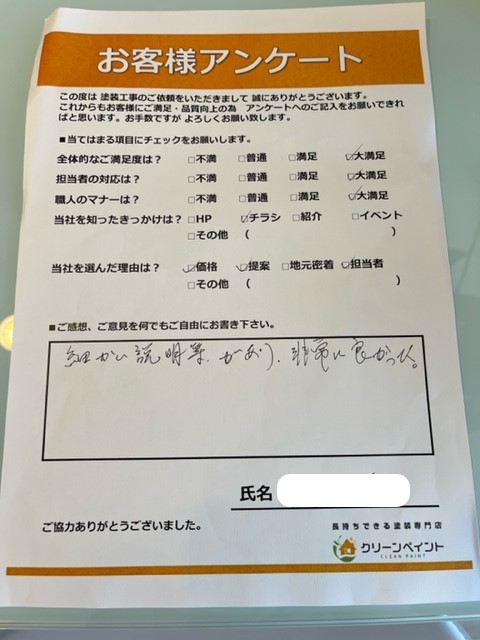 お客様アンケート
この度は 塗装工事のご依頼をいただきまして 誠にありがとうございます。
これからもお客様にご満足・品質向上の為 アンケートへのご記入をお願いできれ
ばと思います。お手数ですが よろしくお願い致します。
■当てはまる項目にチェックをお願いします。
全体的なご満足度は? □不満 □普通 □満足 ☑大満足
担当者の対応は? □不満 □普通 □満足 ☑大満足
職人のマナーは? □不満 □普通 □満足 ☑大満足
当社を知ったきっかけは? □HP ☑チラシ □紹介 □イベント
□その他 ( )
当社を選んだ理由は? ☑価格 ☑提案 □地元密着 ☑担当者
□その他 ( )
■ご感想、ご意見を何でもご自由にお書き下さい。
細かい説明等があり、非常に良かった。
氏名
ご協力ありがとうございました。
長持ちできる塗装専門店
クリーンペイント
CLEAN PAINT